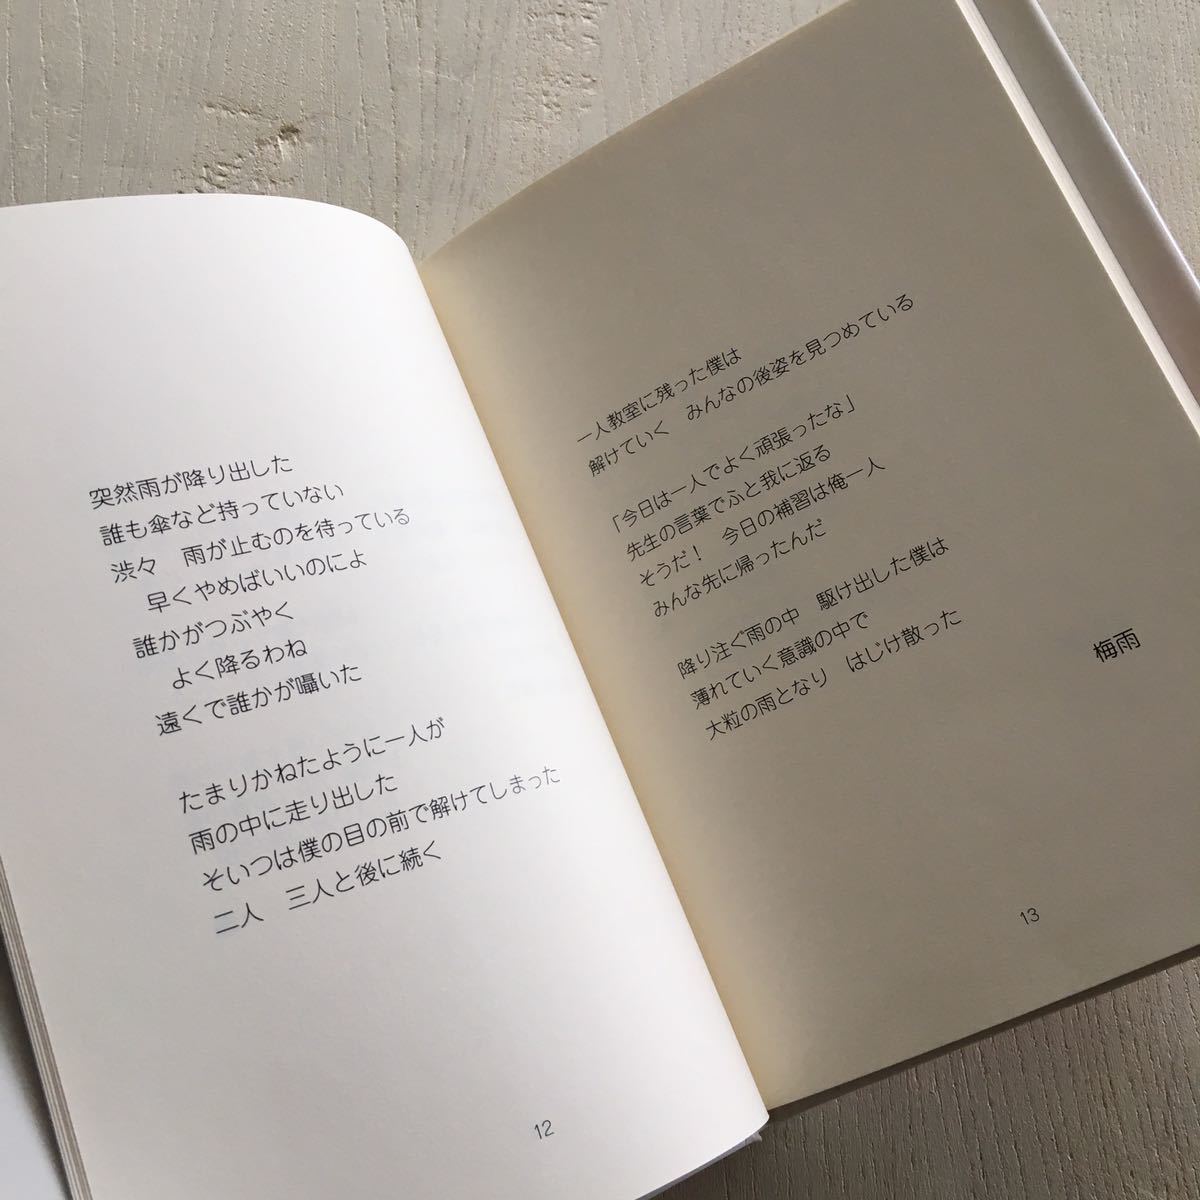 突然雨が降り出した
誰も傘など持っていない
渋々　雨が止むのを待っている
　早くやめばいいのによ
誰かがつぶやく
　よく降るわね
遠くで誰かが囁いた
たまりかねたように一人が
雨の中に走り出した
そいつは僕の目の前で解けてしまった
二人　三人と後に続く
12
一人教室に残った僕は
解けていく　みんなの後姿を見つめている
「今日は一人でよく頑張ったな」
先生の言葉でふと我に返る
そうだ！　今日の補習は俺一人
みんな先に帰ったんだ
降り注ぐ雨の中　駆け出した僕は
薄れていく意識の中で
大粒の雨となり　はじけ散った
梅雨
13